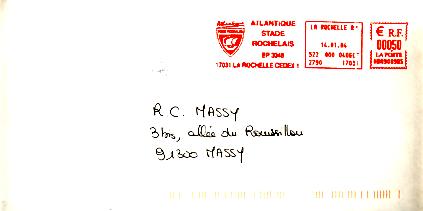 Atlantique
ATLANTIQUE
STADE
ROCHELAIS
BP 3048
17031 LA ROCHELLE CEDEX 1
LA ROCHELLE Rᵖ
14.01.04
522 000
2790 17031
€ R.F.
00050
LA POSTE
R C. MASSY
3 bis, allée du Roussillon
91300 MASSY